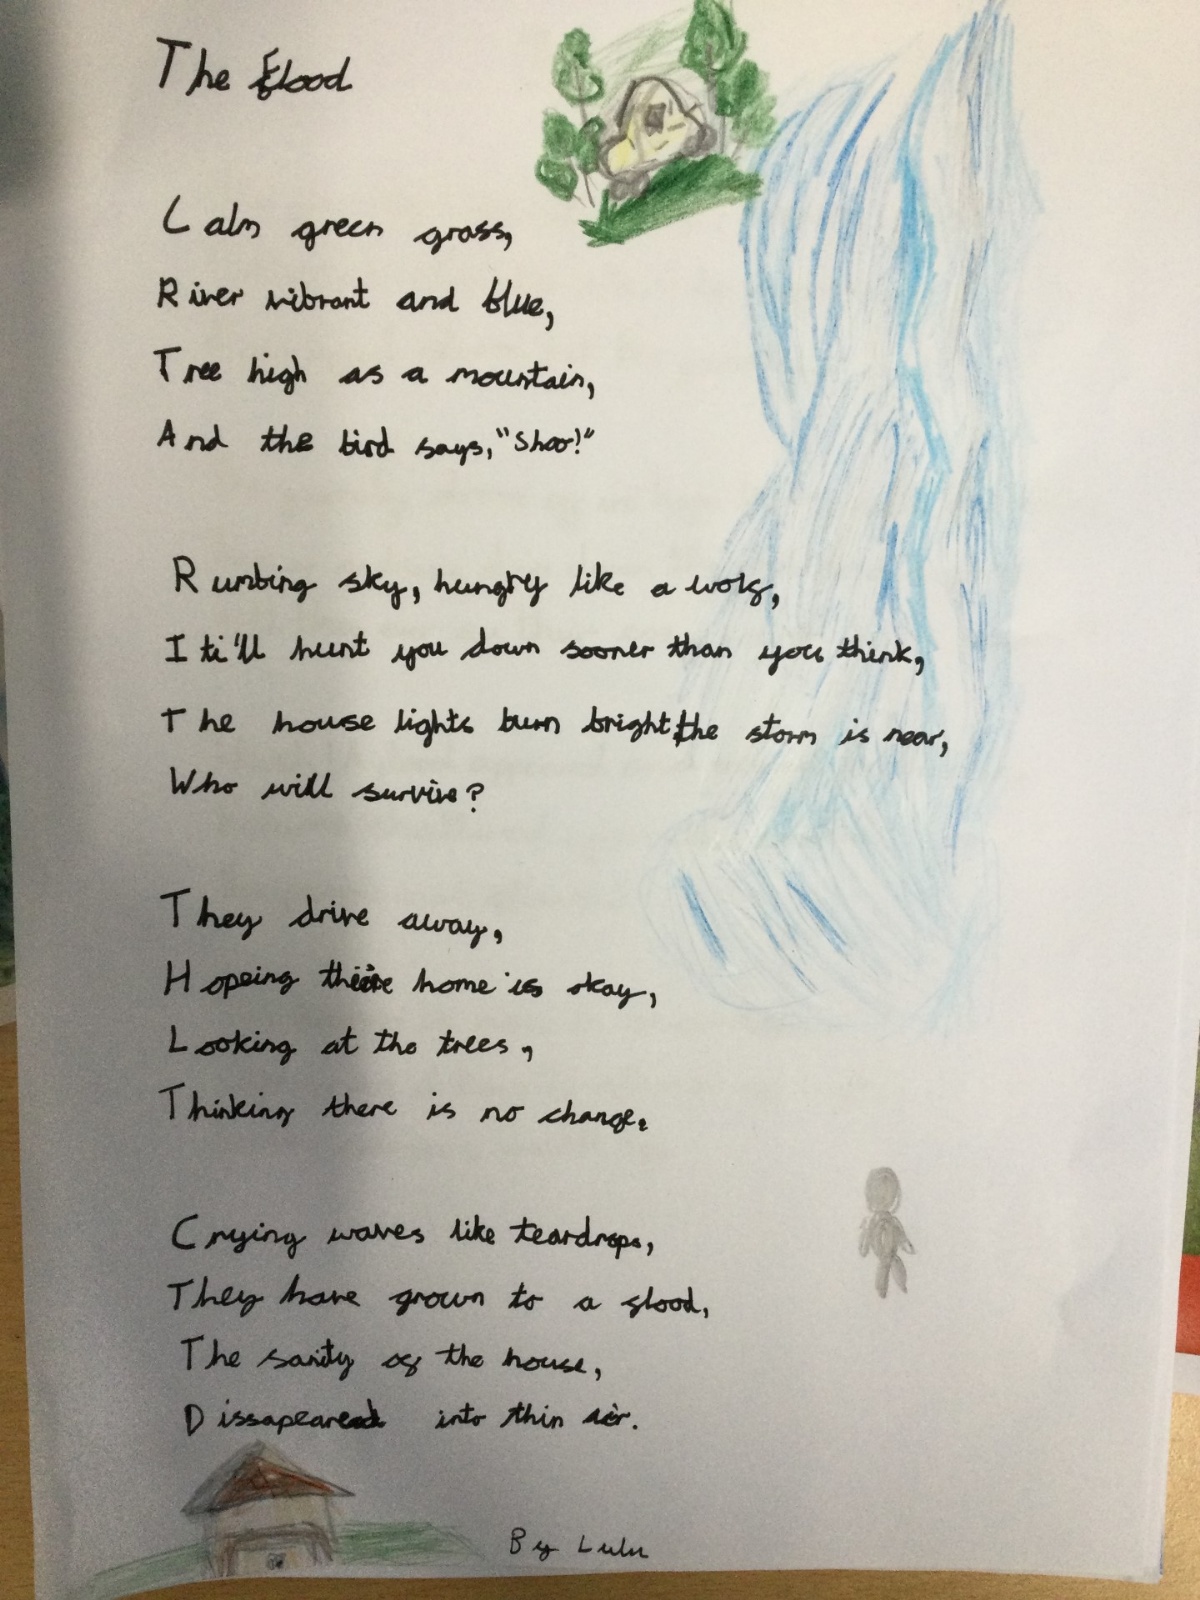 The Flood
Calm green grass,
River vibrant and blue,
Tree high as a mountain,
And the bird says, "Shoo!"
Rumbing sky, hungry like a wolf,
It'll hunt you down sooner than you think,
The house lights burn bright, the storm is near,
Who will survive?
They drive away,
Hopeing their home is okay,
Looking at the trees,
Thinking there is no change.
Crying waves like teardrops,
They have grown to a flood,
The sanity of the house,
Dissapeared into thin air.
By Lulu